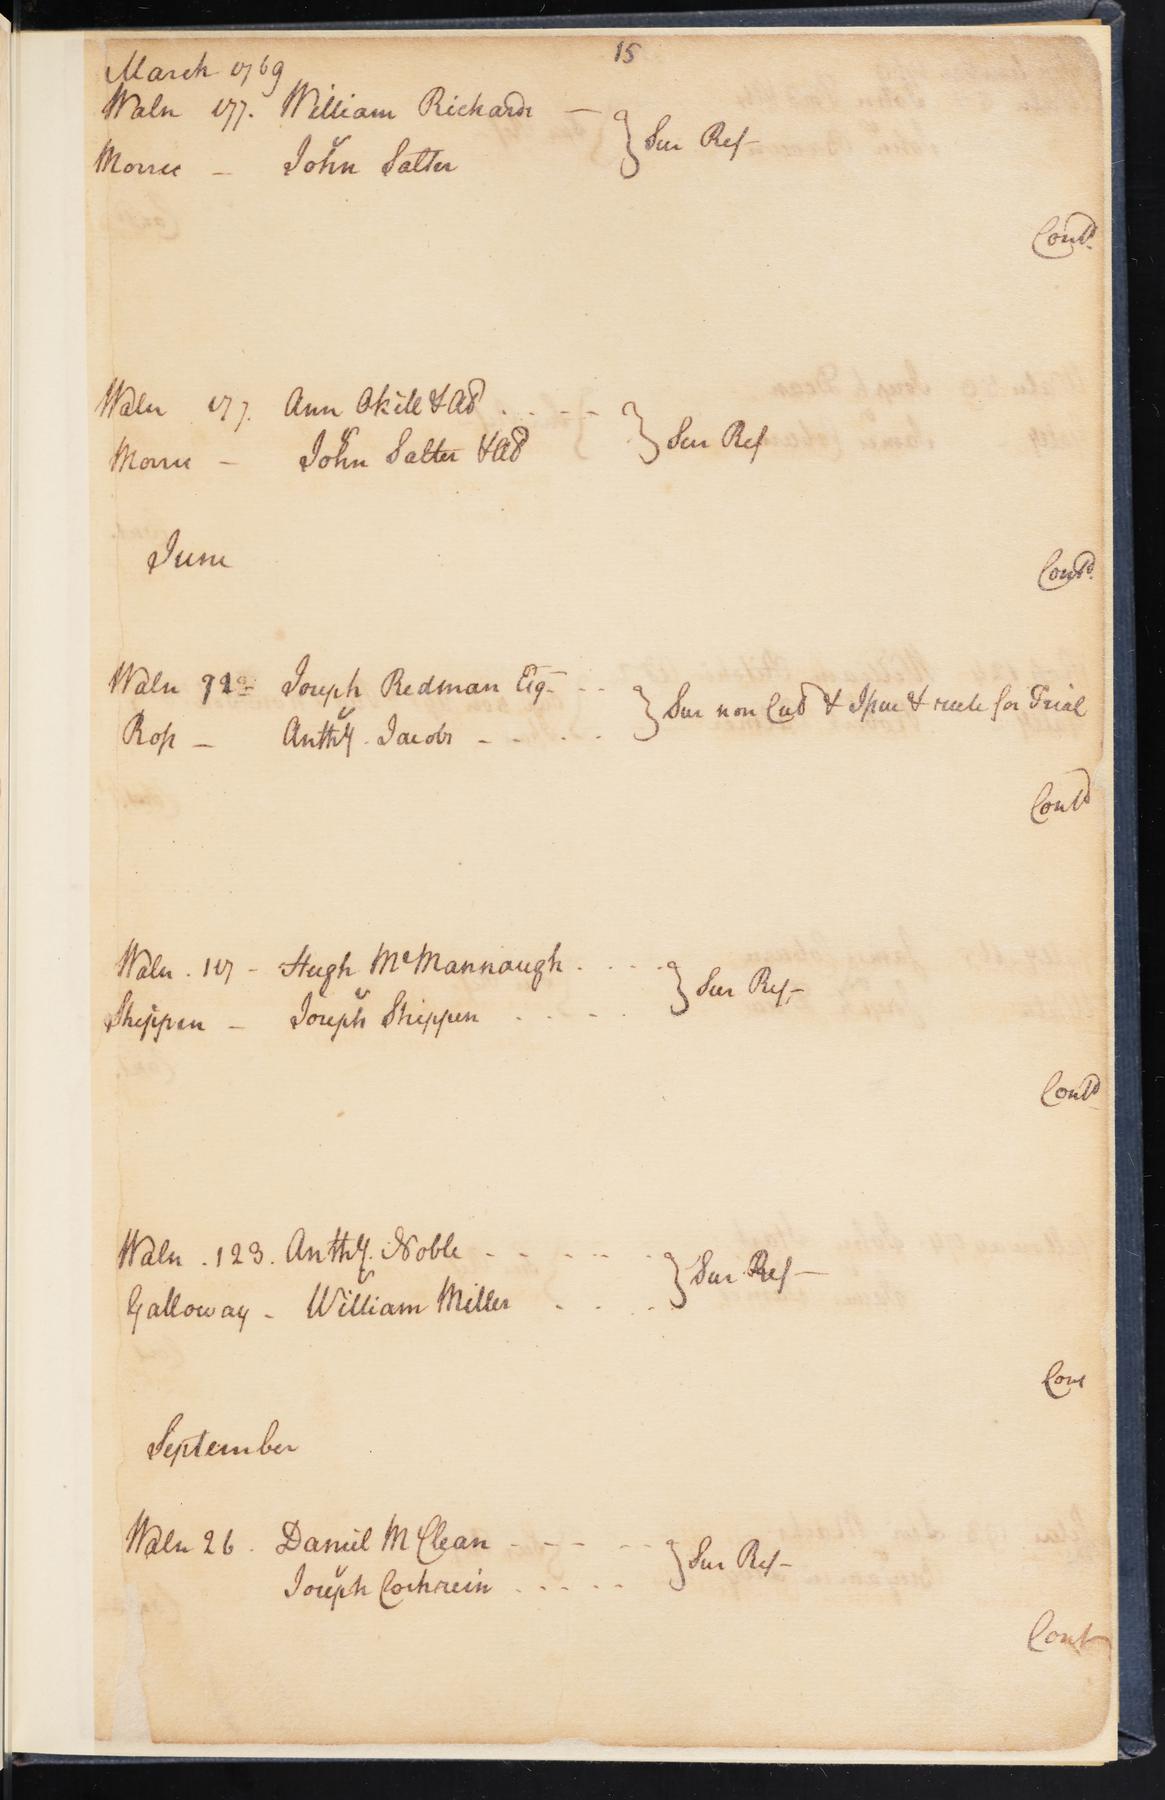 15
March 1769
Waln 177. William Richards — } Sur Ref —
v
Morris — John Salter
Contd.
Waln 177. Ann Okill & Ad . . - - } Sur Ref
v
Morris — John Salter & Ad
June
Contd.
Waln 92 Joseph Redman Esq. - - } Sur non Cul & Issue & rule for Trial
v
Ross — Anthy. Jacobs - - . .
Contd
Waln . 117 - Hugh McMannaugh . . . . } Sur Ref. —
v
Shippen — Joseph Shippen . . . .
Contd
Waln . 123. Anthy. Noble - - - - - } Sur Ref —
v
Galloway - William Miller . . . .
Cont
September
Waln 26 . Daniel McClean - - - - - } Sur Ref —
v
Joseph Cochrein . . . . .
Cont